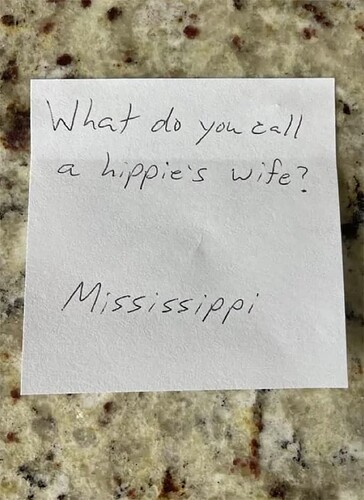 What do you call
a hippie's wife?
Mississippi